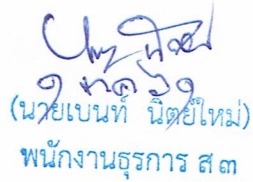 ๑ มค ๖๑
(นายเบนท์ นิตย์ใหม่)
พนักงานธุรการ ส ๓